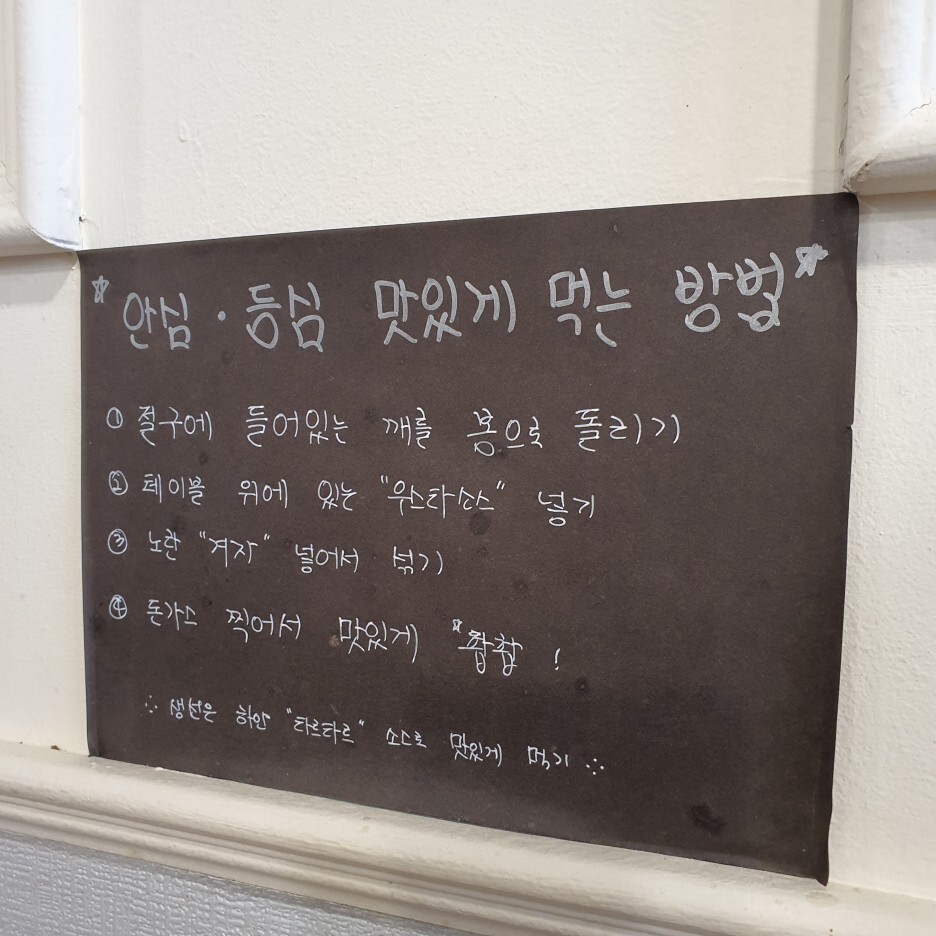 ☆ 안심 · 등심 맛있게 먹는 방법 ☆
① 절구에 들어있는 깨를 봉으로 돌리기
② 테이블 위에 있는 "우스타소스" 넣기
③ 노란 "겨자" 넣어서 섞기
④ 돈가스 찍어서 맛있게 *촵촵 !
∴ 생선은 하얀 "타르타르" 소스로 맛있게 먹기 ∴